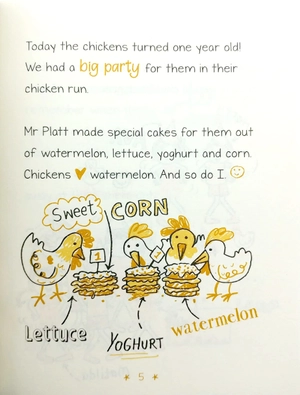 Today the chickens turned one year old!
We had a big party for them in their
chicken run.
Mr Platt made special cakes for them out
of watermelon, lettuce, yoghurt and corn.
Chickens ♥ watermelon. And so do I. ☺
Sweet CORN
1
Lettuce
YOGHURT
watermelon
* 5 *